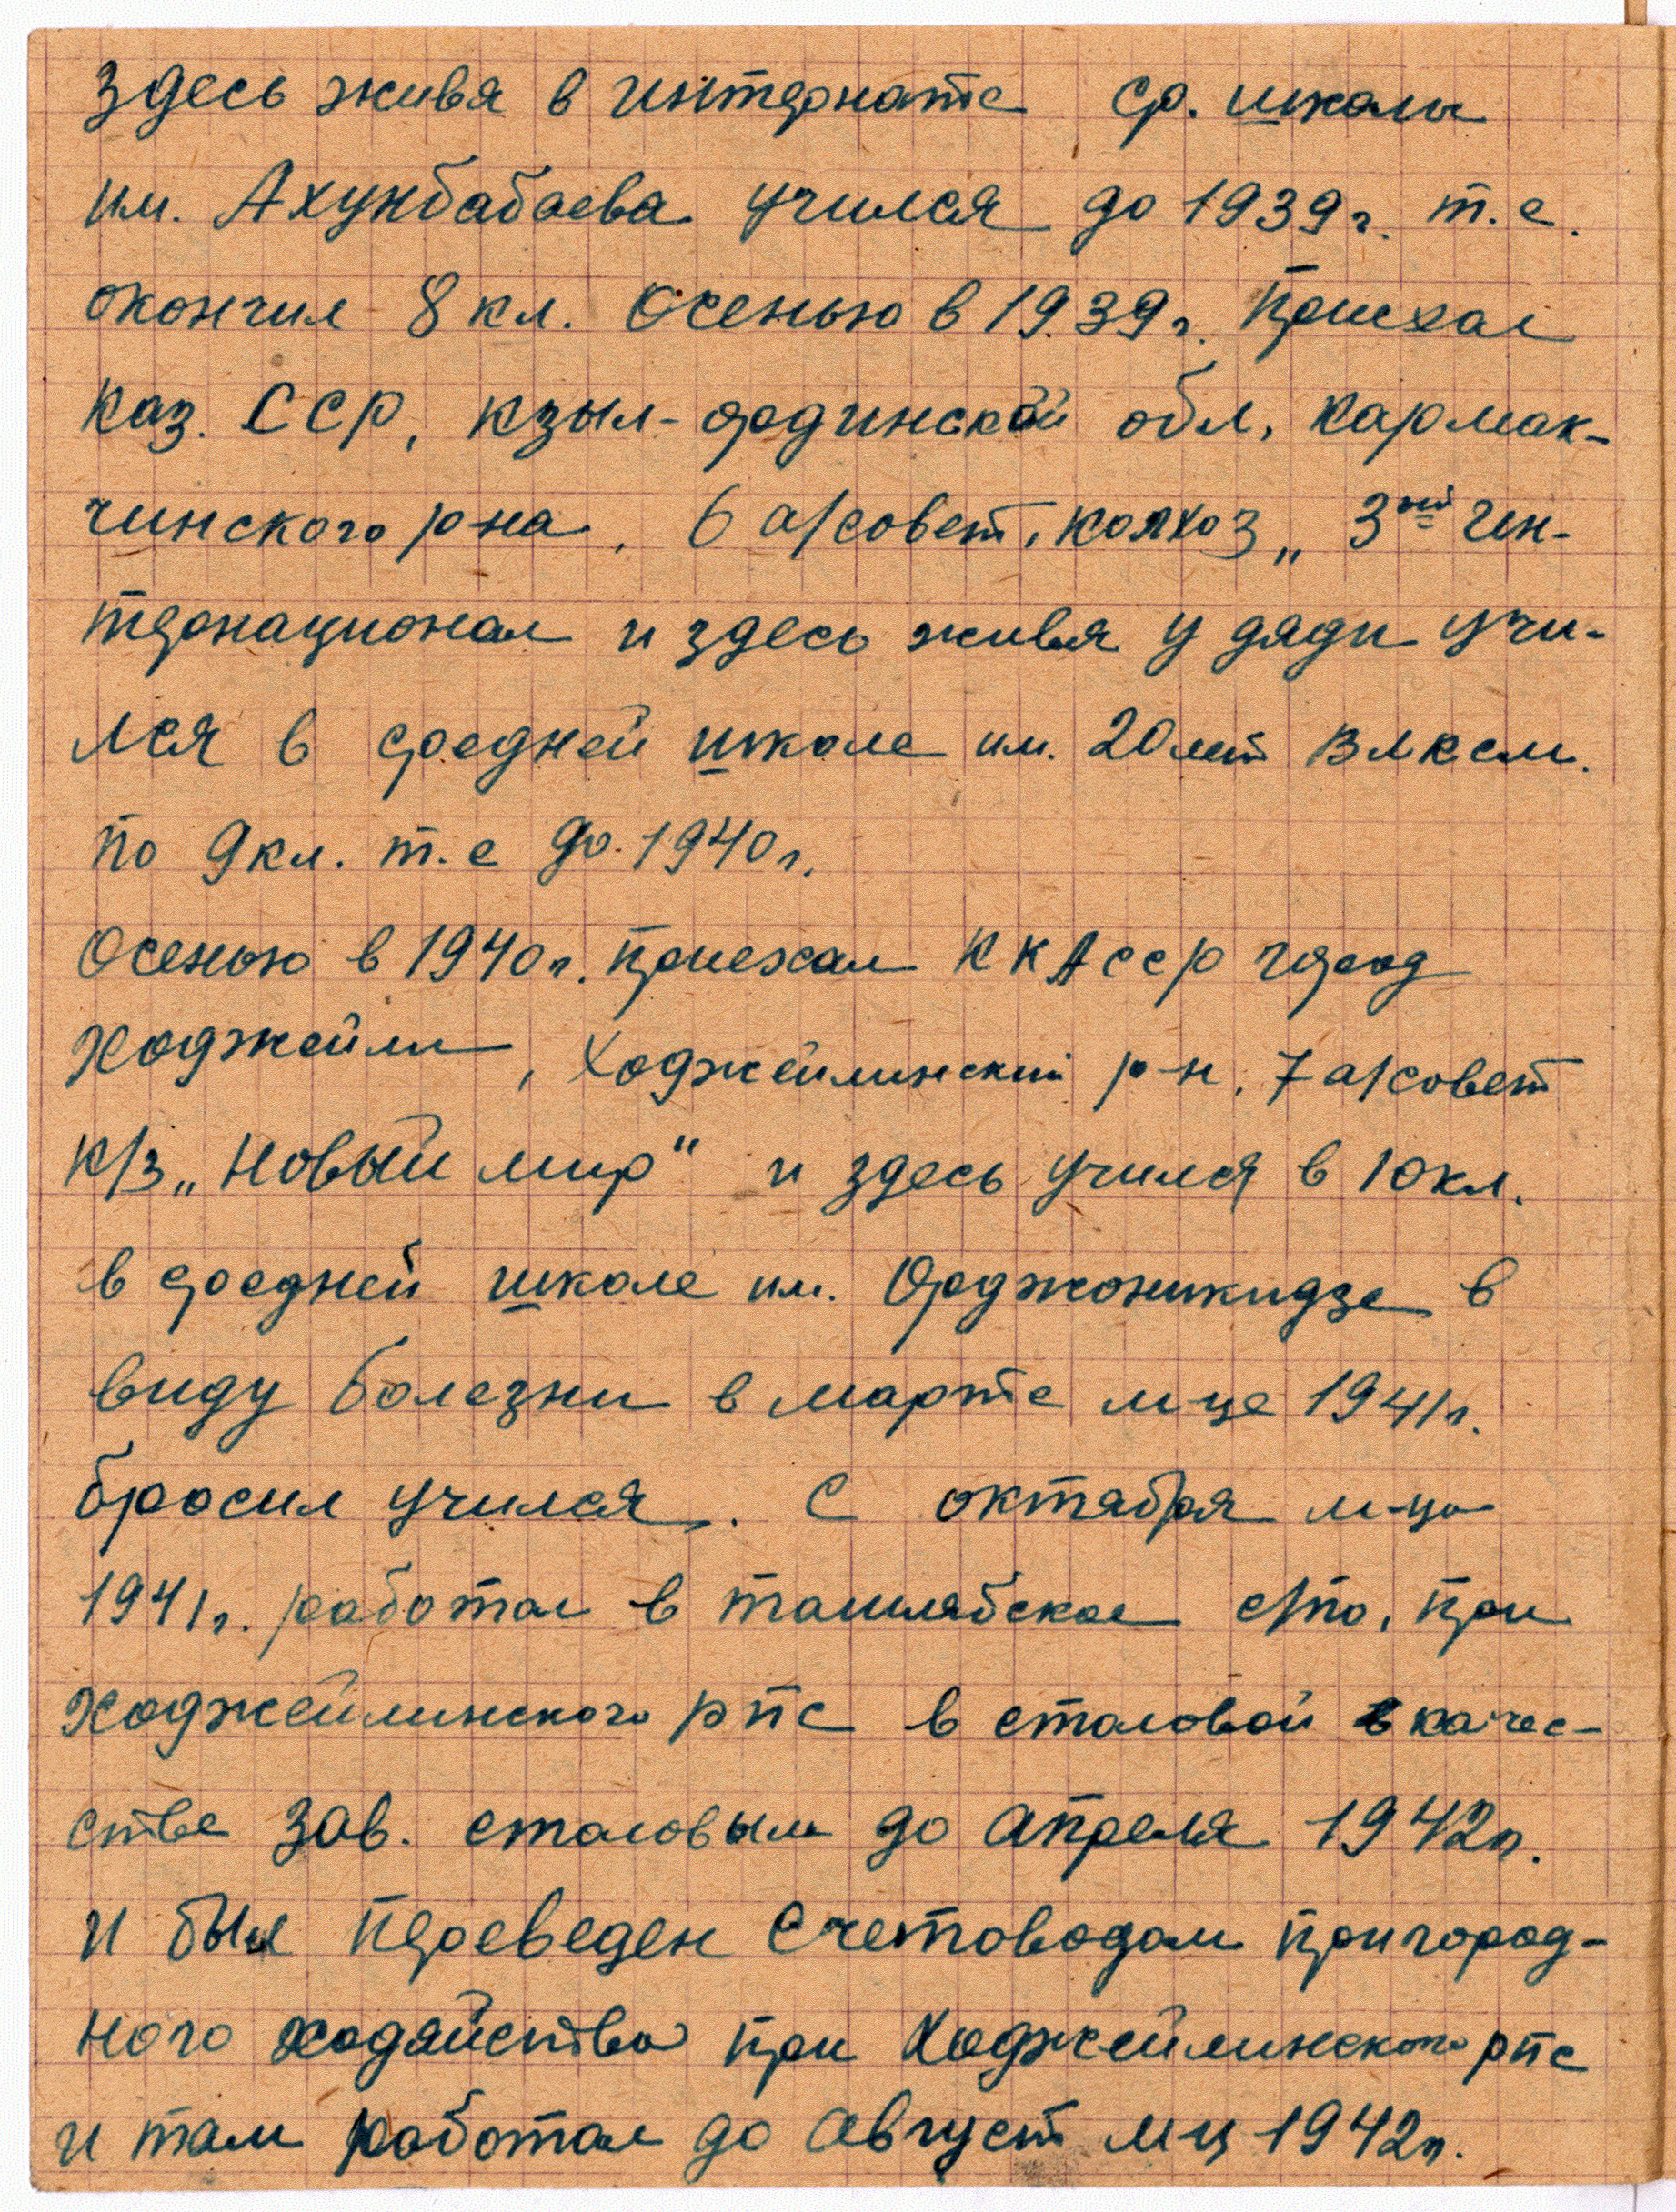 здесь живя в интернате ср. школы
им. Ахунбабаева учился до 1939г. т.е.
окончил 8 кл. Осенью в 1939г. приехал
Каз. ССР, Кзыл-ординской обл, Кармак-
чинского р-на, 6 а/совет, колхоз „3ий Ин-
тернационал и здесь живя у дяди учи-
лся в средней школе им. 20 лет ВЛКСМ.
по 9 кл. т.е до 1940г.
Осенью в 1940г. приехал ККАССР город
Ходжейли, Ходжейлинский р-н, 7 а/совет
к/з „Новый мир“ и здесь учился в 10 кл.
в средней школе им. Орджоникидзе в
виду болезни в марте м-це 1941г.
бросил учился. С октября м-ца
1941г. работал в ташлябскае с/по, при
Ходжейлинского рпс в столовой в качес-
стве зав. столовым до апреля 1942г.
и был переведен счетоводом пригород-
ного ходяйства при Ходжейлинского рпс
и там работал до август м-ц 1942г.